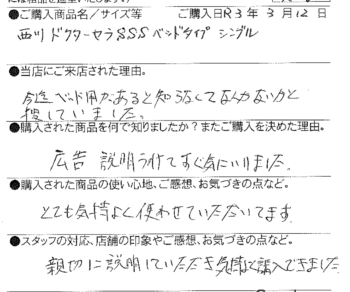 ●ご購入商品名／サイズ等 ご購入日R3年3月12日
西川 ドクターセラSSSベッドタイプ シングル
●当店にご来店された理由。
今迄ベッド用があると知らなくてなんかないかと
捜していました。
●購入された商品を何で知りましたか？またご購入を決めた理由。
広告 説明うけてすぐ気にいりました。
●購入された商品の使い心地、ご感想、お気づきの点など。
とても気持よく使わせていただいてます
●スタッフの対応、店舗の印象やご感想、お気づきの点など。
親切に説明していただき気持よく購入できました